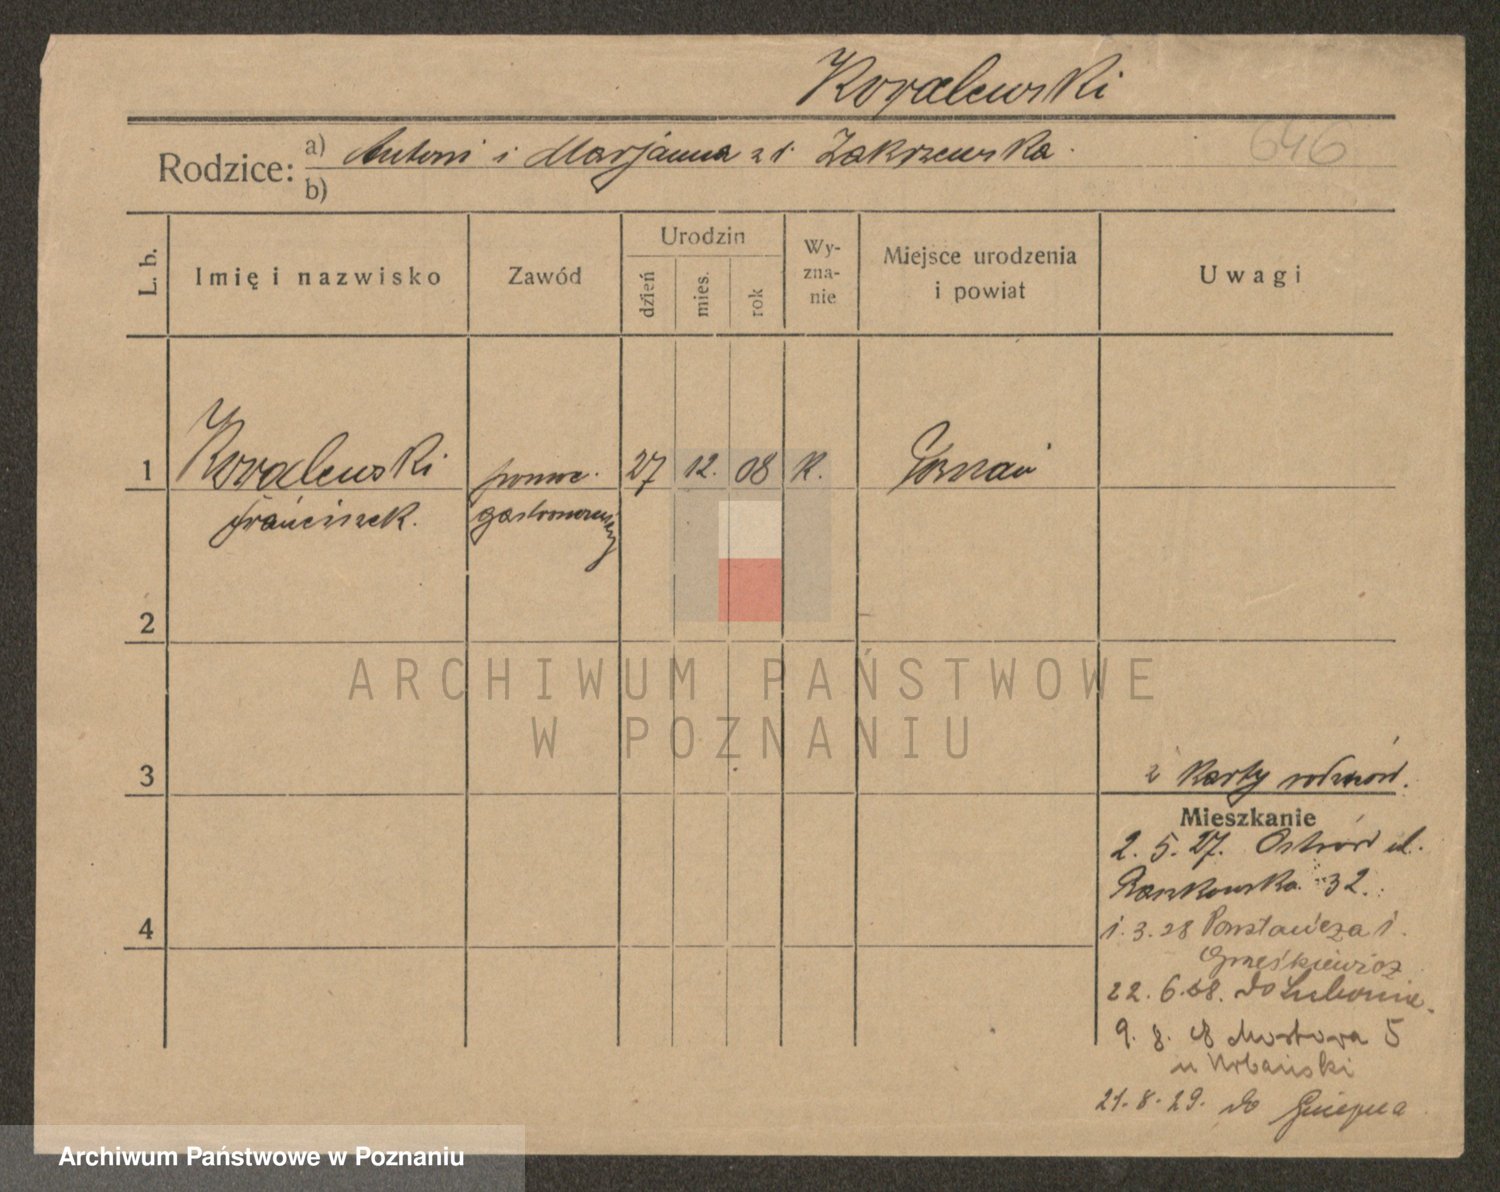 Kowalewski
646
Rodzice: a) Antoni i Marjanna z d. Zakrzewska.
b)
L. b.
Imię i nazwisko
Zawód
Urodzin
dzień
mies.
rok
Wy-
zna-
nie
Miejsce urodzenia
i powiat
Uwagi
1 Kowalewski pomoc. 27 12. 08 K. Poznań
Franciszek. gastronomiczny
2
3
z karty rodziców.
Mieszkanie
2. 5. 27. Ostrów ul.
Raszkowska 32.
4
1. 3. 28 Powstańcza 1.
22. 6. 28. do Lubonia.
9. 8. 28 Mostowa 5
u Urbański
21. 8. 29. do Gniezna
ARCHIWUM PAŃSTWOWE
W POZNANIU
Archiwum Państwowe w Poznaniu